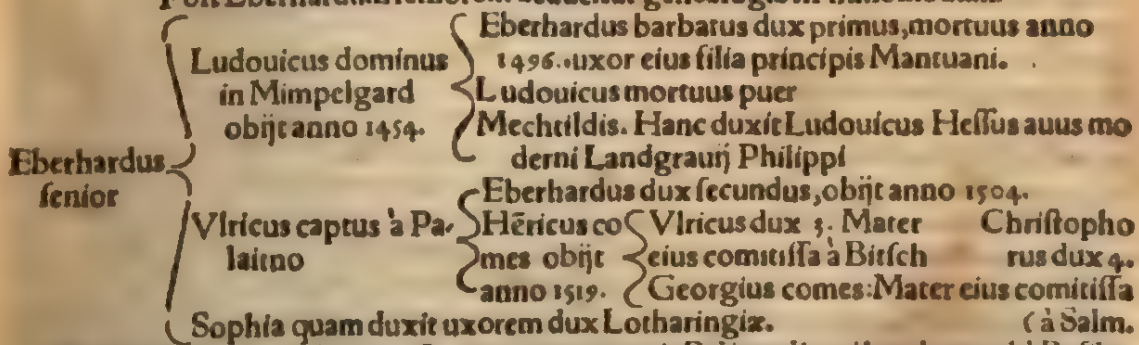 Eberhardus senior
Ludouicus dominus
in Mimpelgard
obijt anno 1454.
Eberhardus barbatus dux primus, mortuus anno
1496. uxor eius filia principis Mantuani.
Ludouicus mortuus puer
Mechtildis. Hanc duxit Ludouicus Hessus auus mo
derni Landgrauij Philippi
Vlricus captus à Pa-
latino
Eberhardus dux secundus, obijt anno 1504.
Hēricus co
mes obijt
anno 1519.
Vlricus dux 3. Mater
eius comitissa à Bitsch
Christopho
rus dux 4.
Georgius comes: Mater eius comitissa
(à Salm.
Sophia quam duxit uxorem dux Lotharingiæ.